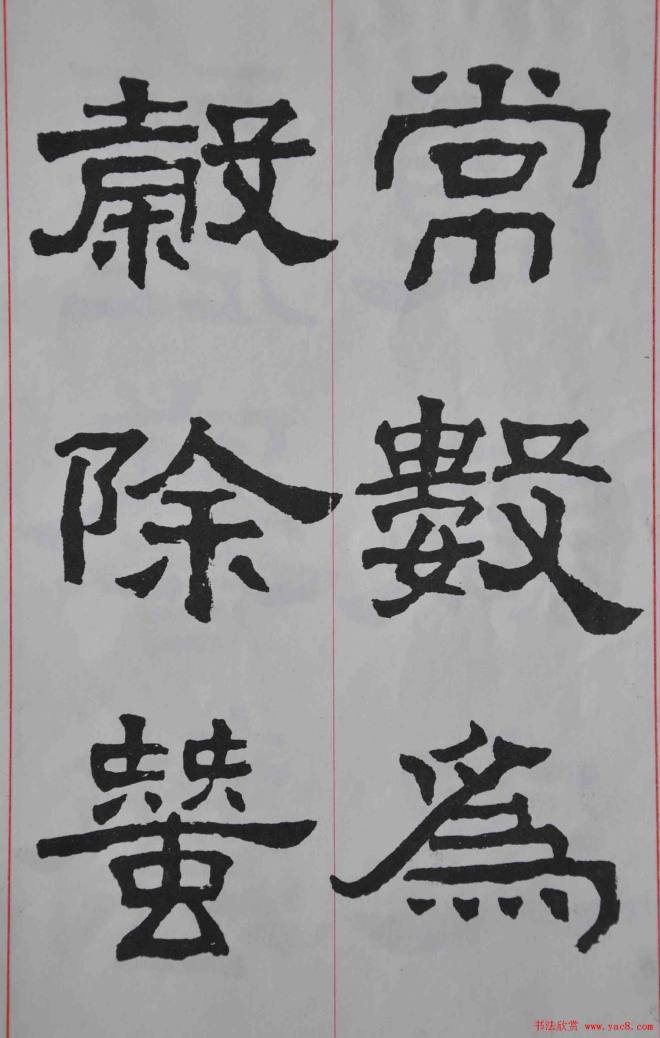 常數為
穀除蠶
书法欣赏 www.yac8.com